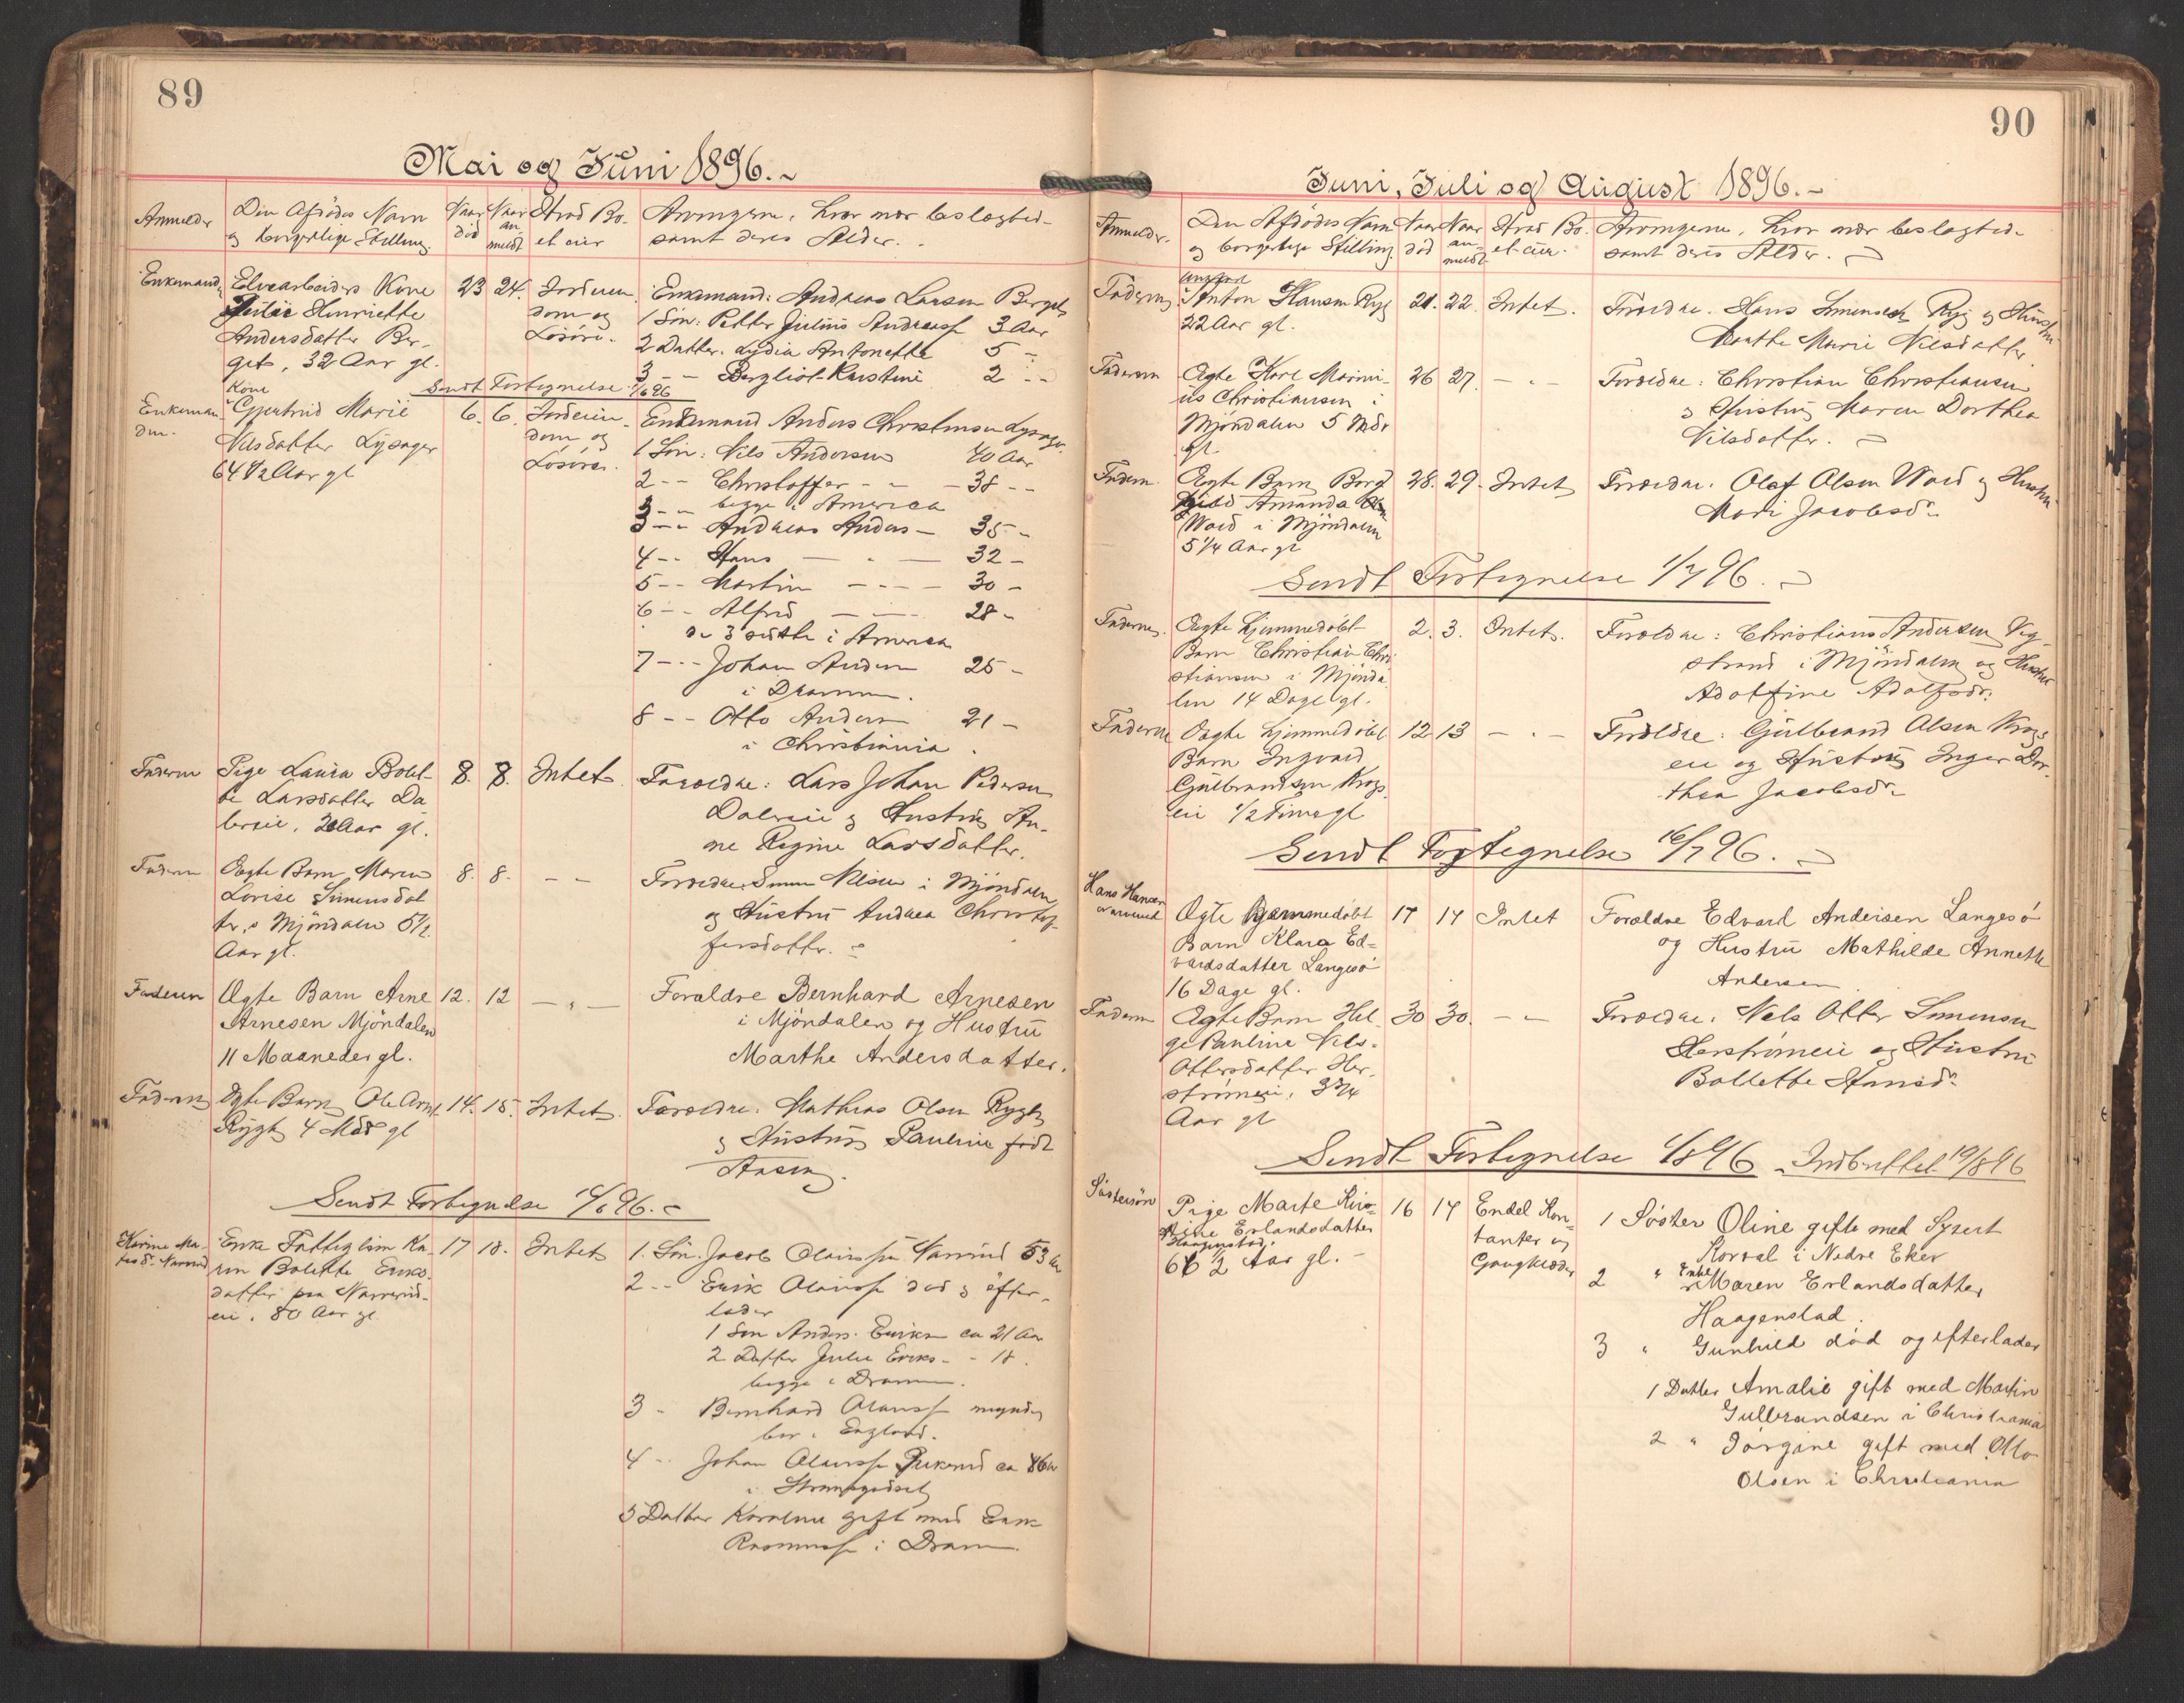 89
Mai og Juni 1896.
Anmelder
Den Afdødes Navn
og borgerlige Stilling.
Naar
død
Naar
an-
meldt
Hvad Bo-
et eier
Arvingerne, hvor nær beslægted-
samt deres Alder.
Enkemand
Elvearbeiders Kone
Henriette
Andersdatter Ber-
get, 32 Aar gl.
23
24.
dom og
Løsøre.
Enkemand: Andreas Larsen Berget
1 Søn: Petter Julius Andreass 3 Aar
2 Datter. Lydia Antonette 5 -
3 - - Bergliot Karstine 2 - -
Sendt Fortegnelse 1/6 96
Enkeman
den.
Kone
Gjertrud Marie
Nilsdatter Lysager
64 1/2 Aar gl
6.
6.
dom og
Løsøre.
Enkemand Anders Christensen Lysager
1 Søn: Nils Andersen 40 Aar
2 - - Christoffer - - - 38 - -
begge i America
3 - - Andreas Anders - 35 -
4 - - Hans - - - 32 -
5 - - Martin - - - 30 -
6 - - Alfred - - 28 -
de 3 sidste i America
7 - - Johan Anders 25 -
i Drammen.
8 - - Otto Anders 21 -
i Christiania.
Faderen
Pige Laura Bolet-
te Larsdatter Da
lereie, Aar gl.
8.
8.
Intet
Forældre: Lars Johan Pedersen
Dalereie og Hustru An-
ne Regine Larsdatter.
Faderen
Ægte Barn Maren
Lovise Simensdat
ter, Mjøndalen 5 1/2
Aar gl.
8.
8.
- -
Forældre Simen Nilsen i Mjøndalen
og Hustru Andrea Christof-
fersdatter.
Faderen
Ægte Barn Arne
Arnesen Mjöndalen
11 Maaneder gl.
12.
12
- " -
Forældre Bernhard Arnesen
i Mjöndalen og Hustru
Marthe Andersdatter.
Faderen
Ægte Barn Ole Arnt
Rygh 4 Mdr gl
14.
15.
Intet.
Forældre. Mathias Olsen Rygh
og Hustru Pauline født
Aasen.
Sendt Fortegnelse 16/6 96.
Karine Ma-
Enke Fattiglem Ka-
ren Bolette Eriks-
datter paa Narverud-
eie. 80 Aar gl.
17
18.
Intet
1. Søn. Jacob Olaussen Narverud 53 Aar
2 - - Erik Olauss død og efter-
lader
1 Søn Anders Eriksen ca 21 Aar
2 Datter Julie Eriks - - 18.
begge i Drammen.
3 - Bernhard Olauss myndig
bor i England.
4 - - Johan Olauss ca
i Strømsgodset
5 Datter Karoline gift med
Rasmuss i Dram
90
Juni, Juli og August 1896.
Anmelder.
Den Afdødes Navn
og borgerlige Stilling.
Naar
død
Naar
an-
meldt
Hvad Bo-
et eier.
Arvingerne, hvor nær beslægted-
samt deres Alder.
Faderen
Ungkarl
Anton Hansen Ryg
22 Aar gl.
21.
22.
Intet.
Forældre. Hans Simensen Ryg og Hustru
Marthe Marie Nilsdatter
Faderen
Ægte Karl Marini-
us Christiansen i
Mjöndalen 5 Mdr
gl.
26
27.
- " -
Forældre: Christian Christiansen
og Hustru Maren Dorthea
Nilsdatter.
Faderen
Ægte Barn Borg
hild Amanda
Word i Mjöndalen
5 1/4 Aar gl
28.
29.
Intet
Forældre. Olaf Olsen Word og Hustru
Mari Jacobsd.
Sendt Fortegnelse 1/7 96.
Faderen.
Ægte hjemmedøbt
Barn Christian Chri
stiansen i Mjønda
len 14 Dage gl.
2.
3.
Intet.
Forældre: Christian Andersen Veg-
strand i Mjöndalen og Hustru
Adolfine Adolfsdr.
Faderen
Ægte hjemmedøbt
Barn Ingvard
Gulbrandsen Krogs-
eie 1/2 Time gl
12
13
- " -
Forældre: Gulbrand Olsen Krogs
eie og Hustru Inger Dor-
thea Jacobsdr.
Sendt Fortegnelse 16/7 96.
Hans Hansen
Ægte hjemmedøbt
Barn Klara Ed-
vardsdatter Langesö
16 Dage gl.
17
17
Intet
Forældre Edvard Andersen Langesö
og Hustru Mathilde Annette
Andersen
Faderen
Ægte Barn Hel-
ga Pauline Nils-
Ottersdatter Her-
strømeie. 3 3/4
Aar gl
30
30.
- -
Forældre. Nils Otter Simensen
Herstrømeie og Hustru
Bollette Hansd.
Sendt Fortegnelse 1/8 96 - Indberettet 19/8 96
Søstersøn
Pige Marte Kir-
stine Erlandsdatter
Haagenstad.
66 1/2 Aar gl. -
16
17
Endel Kon-
tanter og
Gangklæder
1 Søster Oline gifte med Syvert
Korvald i Nedre Eker
2 " Enke Maren Erlandsdatter
Haagenstad.
3 " Gunhild død og efterlader
1 Datter Amalie gift med Martin
Gulbrandsen i Christiania
2 " Jørgine gift med Otto
Olsen i Christiania